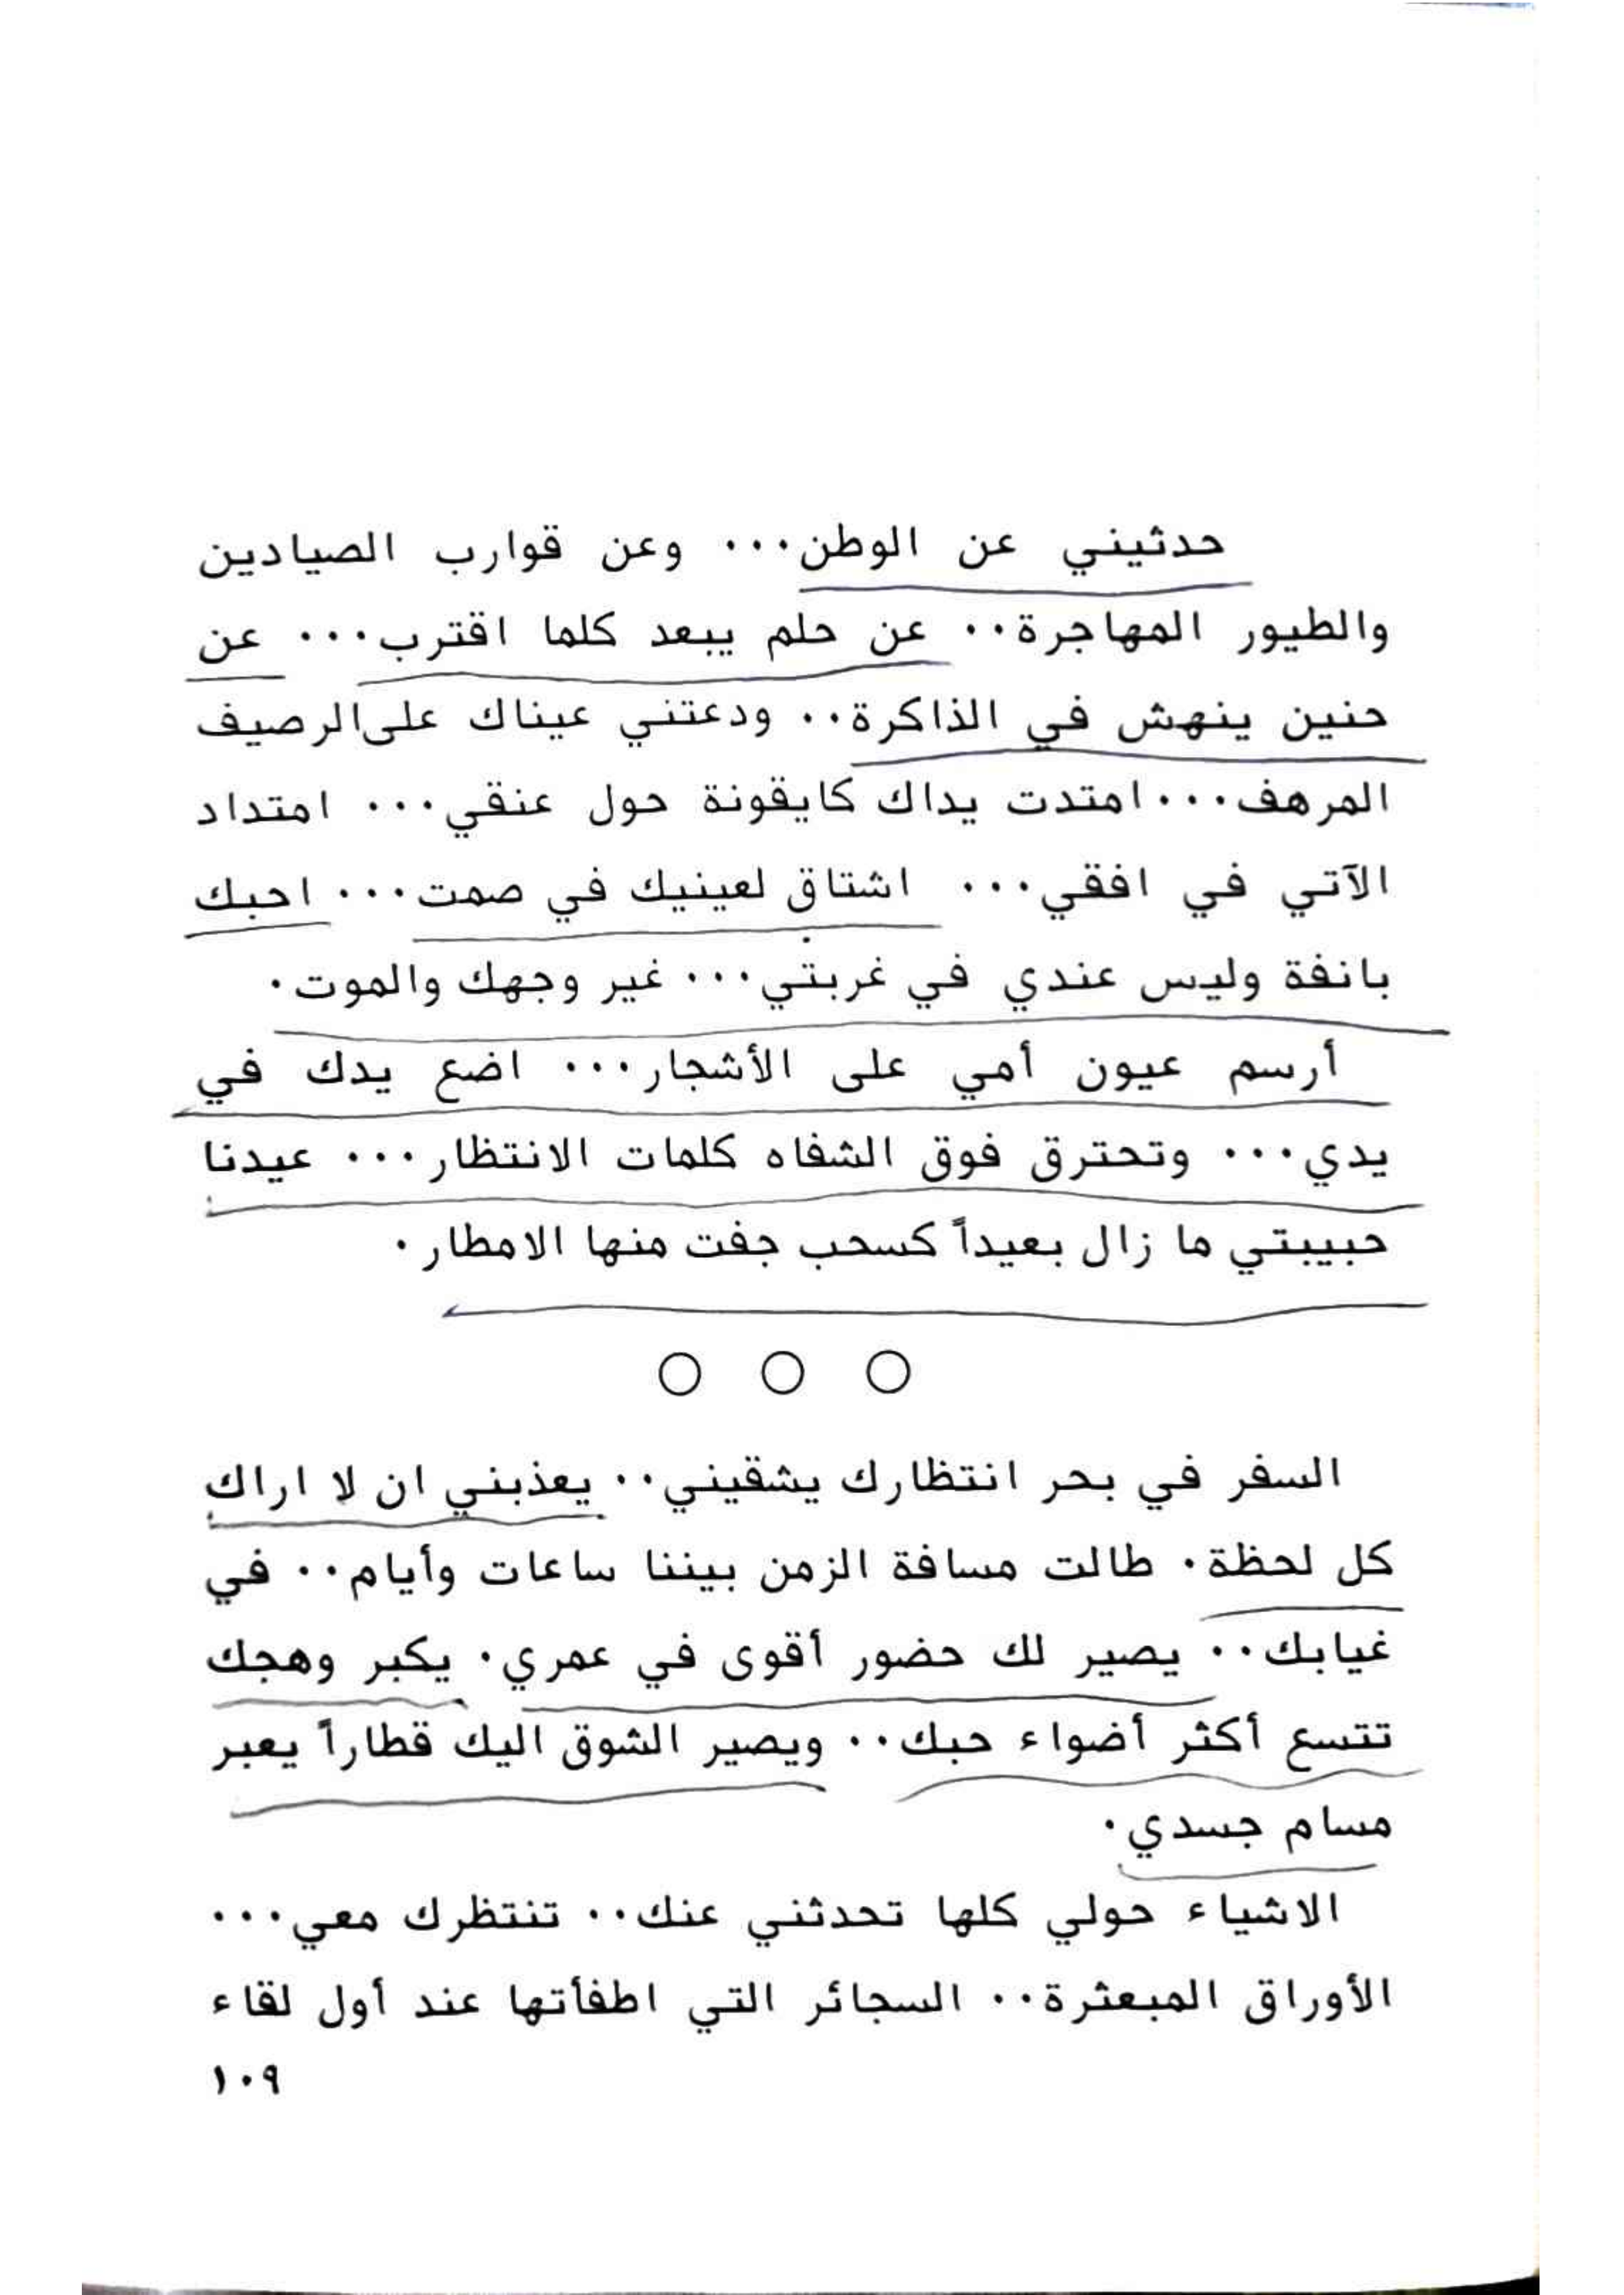 حدثيني عن الوطن... وعن قوارب الصيادين
والطيور المهاجرة.. عن حلم يبعد كلما اقترب... عن
حنين ينهش في الذاكرة.. ودعتني عيناك على الرصيف
المرهف... امتدت يداك كايقونة حول عنقي... امتداد
الآتي في افقي... اشتاق لعينيك في صمت... احبك
بانفة وليس عندي في غربتي... غير وجهك والموت.
أرسم عيون أمي على الأشجار... اضع يدك في
يدي... وتحترق فوق الشفاه كلمات الانتظار... عيدنا
حبيبتي ما زال بعيداً كسحب جفت منها الامطار.
○ ○ ○
السفر في بحر انتظارك يشقيني.. يعذبني ان لا اراك
كل لحظة. طالت مسافة الزمن بيننا ساعات وأيام.. في
غيابك.. يصير لك حضور أقوى في عمري. يكبر وهجك
تتسع أكثر أضواء حبك.. ويصير الشوق اليك قطاراً يعبر
مسام جسدي.
الاشياء حولي كلها تحدثني عنك.. تنتظرك معي...
الأوراق المبعثرة.. السجائر التي اطفأتها عند أول لقاء
١٠٩